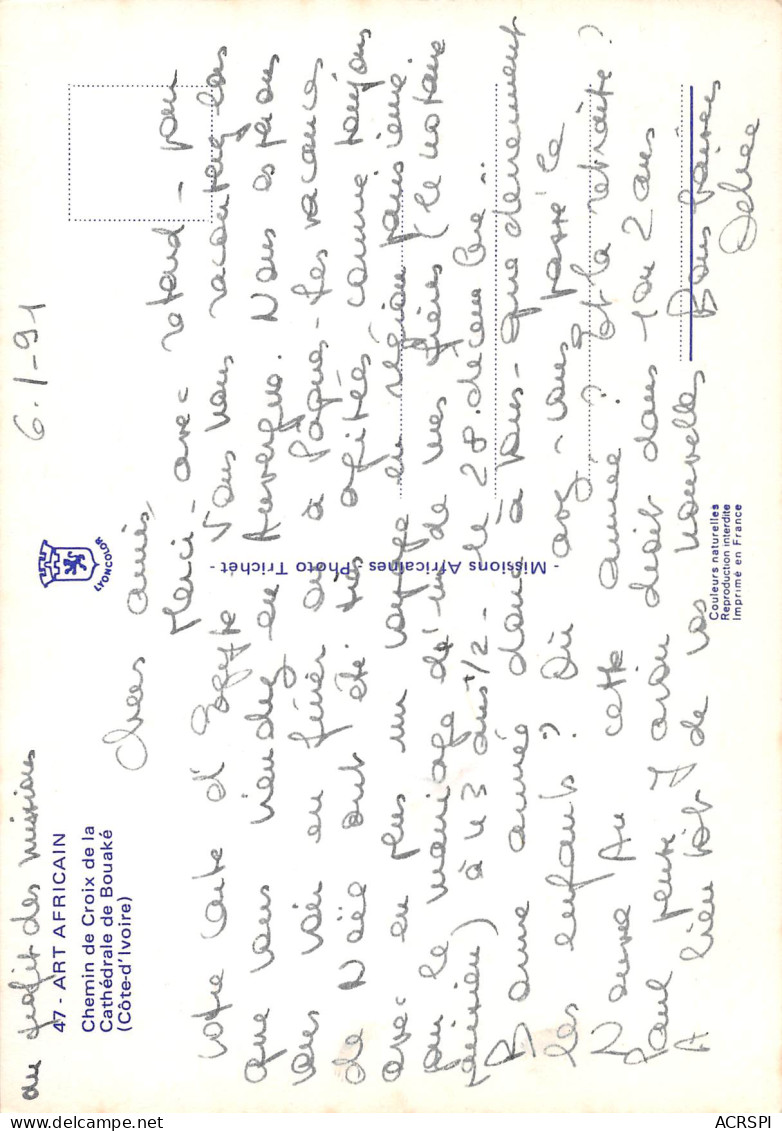 au profit des missions
6.1-91
47 - ART AFRICAIN
Chemin de Croix de la
Cathédrale de Bouaké
(Côte-d'Ivoire)
LYONCOLOR
Chers amis,
Merci - avec retard - pour
votre carte d'Egypte Vous nous raconterez cas
que vous viendrez en Auvergne. Nous espérons
vous voir en février ou à Pâques - Les vacances
de Noël ont été très agitées comme toujours
avec en plus un voyage en région parisienne
pour le mariage de l'un de mes frères (le notaire
parisien) à 43 ans 1/2 - le 28. décembre...
Bonne année donc à vous - que devenement
les enfants ? Où avez-vous passé le
Nouvel An cette année ? Et la retraite ?
Paul pense y avoir droit dans 1 ou 2 ans
A bientôt de vos nouvelles Bons baisers
- Missions Africaines - Photo Trichet -
Couleurs naturelles
Reproduction interdite
Imprimé en France
ACRSPI